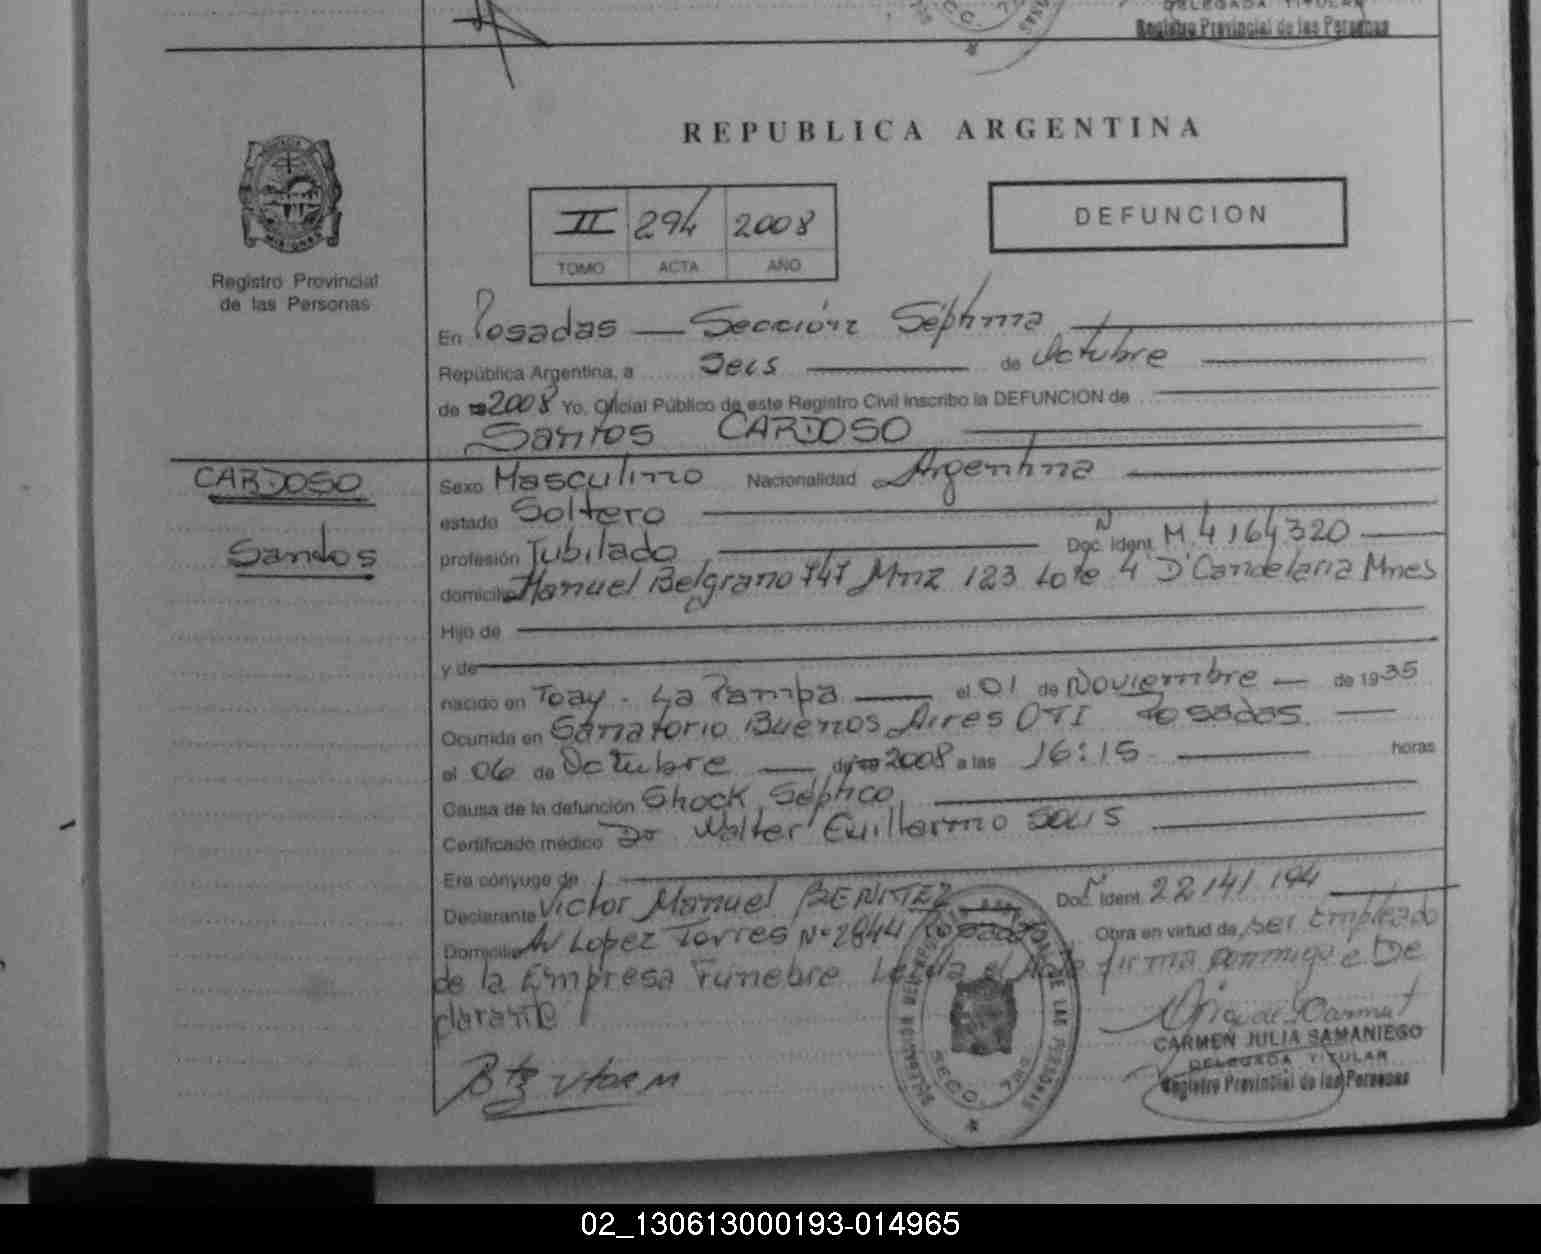 DELEGADA TITULAR
Registro Provincial de las Personas
REPUBLICA ARGENTINA
II 294 2008
TOMO ACTA AÑO
DEFUNCION
Registro Provincial
de las Personas
En Posadas — Sección Séptima
República Argentina, a Seis de Octubre
de 2008 Yo, Oficial Público de este Registro Civil inscribo la DEFUNCION de
Santos CARDOSO
CARDOSO
Santos
Sexo Masculino Nacionalidad Argentina
estado Soltero
profesión Jubilado Doc. Ident. M 4164320
domicilio Manuel Belgrano 747 Mnz 123 Lote 4 D'Candelaria Mnes
Hijo de
y de
nacido en Toay - La Pampa el 01 de Noviembre de 1935
Ocurrida en Sanatorio Buenos Aires OTI Posadas
el 06 de Octubre de 2008 a las 16:15 horas
Causa de la defunción Shock Séptico
Certificado médico Dr Walter Guillermo SOLIS
Era cónyuge de
Declarante Victor Manuel BENITEZ Doc. Ident. 22141194
Domicilio Av Lopez Torres N° 2844 Posadas Obra en virtud de ser Empleado
de la Empresa Funebre Leida el Acta firma conmigo e De
clarante
CARMEN JULIA SAMANIEGO
DELEGADA TITULAR
Registro Provincial de las Personas
SECC. 7MA
02_130613000193-014965